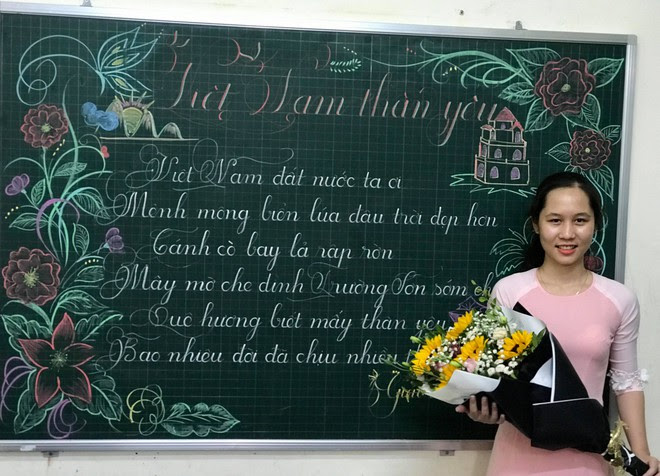 Việt Nam thân yêu
Việt Nam đất nước ta ơi
Mênh mông biển lúa đâu trời đẹp hơn
Cánh cò bay lả rập rờn
Mây mờ che đỉnh Trường Sơn sớm
Quê hương biết mấy thân yêu
Bao nhiêu đời đã chịu nhiều